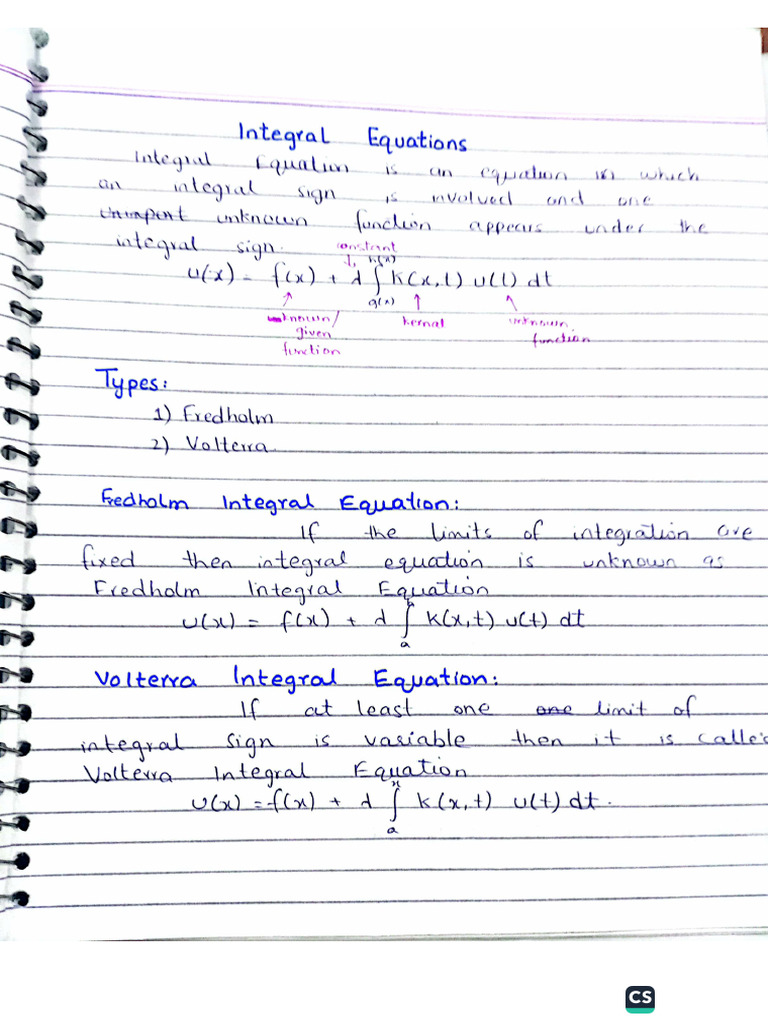 Integral Equations
Integral Equation is an equation in which
an integral sign is involved and one
unknown function appears under the
integral sign.
constant
↓ h(x)
u(x) = f(x) + λ ∫ k(x,t) u(t) dt
g(x)
known/ kernal unknown
given function
function
Types:
1) Fredholm
2) Volterra
Fredholm Integral Equation:
If the limits of integration are
fixed then integral equation is unknown as
Fredholm Integral Equation
u(x) = f(x) + λ ∫ k(x,t) u(t) dt
a
Volterra Integral Equation:
If at least one one limit of
integral sign is variable then it is called
Volterra Integral Equation
x
u(x) = f(x) + λ ∫ k(x,t) u(t) dt.
a
CS